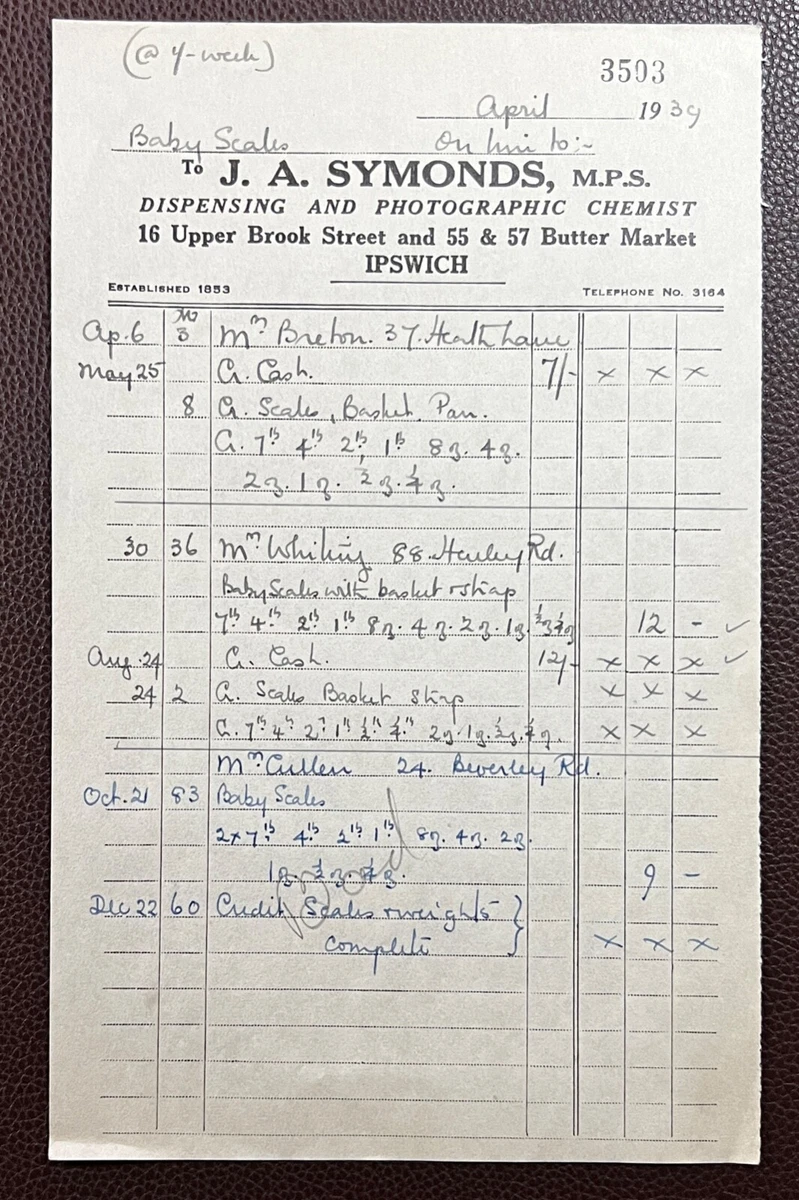 (@ 4/- week)
3503
April 1939
Baby Scales On hire to:-
To J. A. SYMONDS, M.P.S.
DISPENSING AND PHOTOGRAPHIC CHEMIST
16 Upper Brook Street and 55 & 57 Butter Market
IPSWICH
ESTABLISHED 1853 TELEPHONE No. 3164
Ap. 6 3 Mrs Breton. 37. Heath Lane
May 25 Cr. Cash. 7/- x x x
8 Cr. Scales, Basket, Pan.
Cr. 7lb 4lb 2lb, 1lb 8z. 4z.
2z. 1z. ½z. ¼z.
30 36 Mrs Whiting 88. Henley Rd.
Baby Scales with basket & strap
7lb 4lb 2lb 1lb 8z. 4z. 2z. 1z. ½z ¼z 12 - ✓
Aug. 24 Cr. Cash. 12/- x x x ✓
24 2 Cr. Scales Basket Strap x x x
Cr. 7lb 4lb 2lb 1lb ½lb ¼lb 2z. 1z. ½z. ¼z. x x x
Mrs Cullen 24. Beverley Rd.
Oct. 21 83 Baby Scales
2x7lb 4lb 2lb 1lb 8z. 4z. 2z.
1z. ½z. ¼z. 9 -
Dec 22 60 Credit Scales & weights }
complete x x x